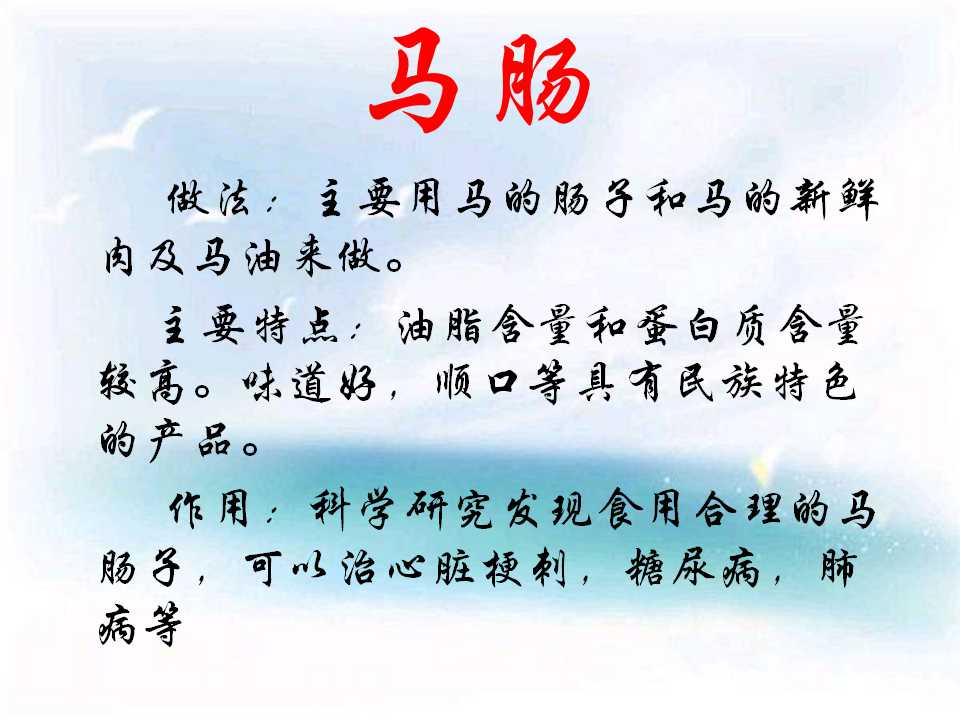 马肠
做法：主要用马的肠子和马的新鲜
肉及马油来做。
主要特点：油脂含量和蛋白质含量
较高。味道好，顺口等具有民族特色
的产品。
作用：科学研究发现食用合理的马
肠子，可以治心脏梗刺，糖尿病，肺
病等